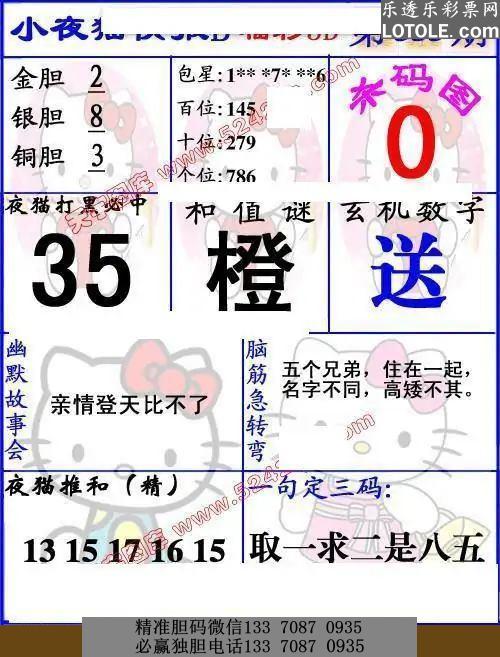 乐透乐彩票网
LOTOLE.COM
小夜猫
第
期
金胆 2
银胆 8
铜胆 3
包星: 1** *7* **6
百位: 145
十位: 279
个位: 786
杀码图
0
夜猫打黑必中
35
和值谜
橙
玄机数字
送
幽默故事会
亲情登天比不了
脑筋急转弯
五个兄弟，住在一起，
名字不同，高矮不其。
夜猫推和（精）
13 15 17 16 15
一句定三码:
取一求二是八五
精准胆码微信133 7087 0935
必赢独胆电话133 7087 0935